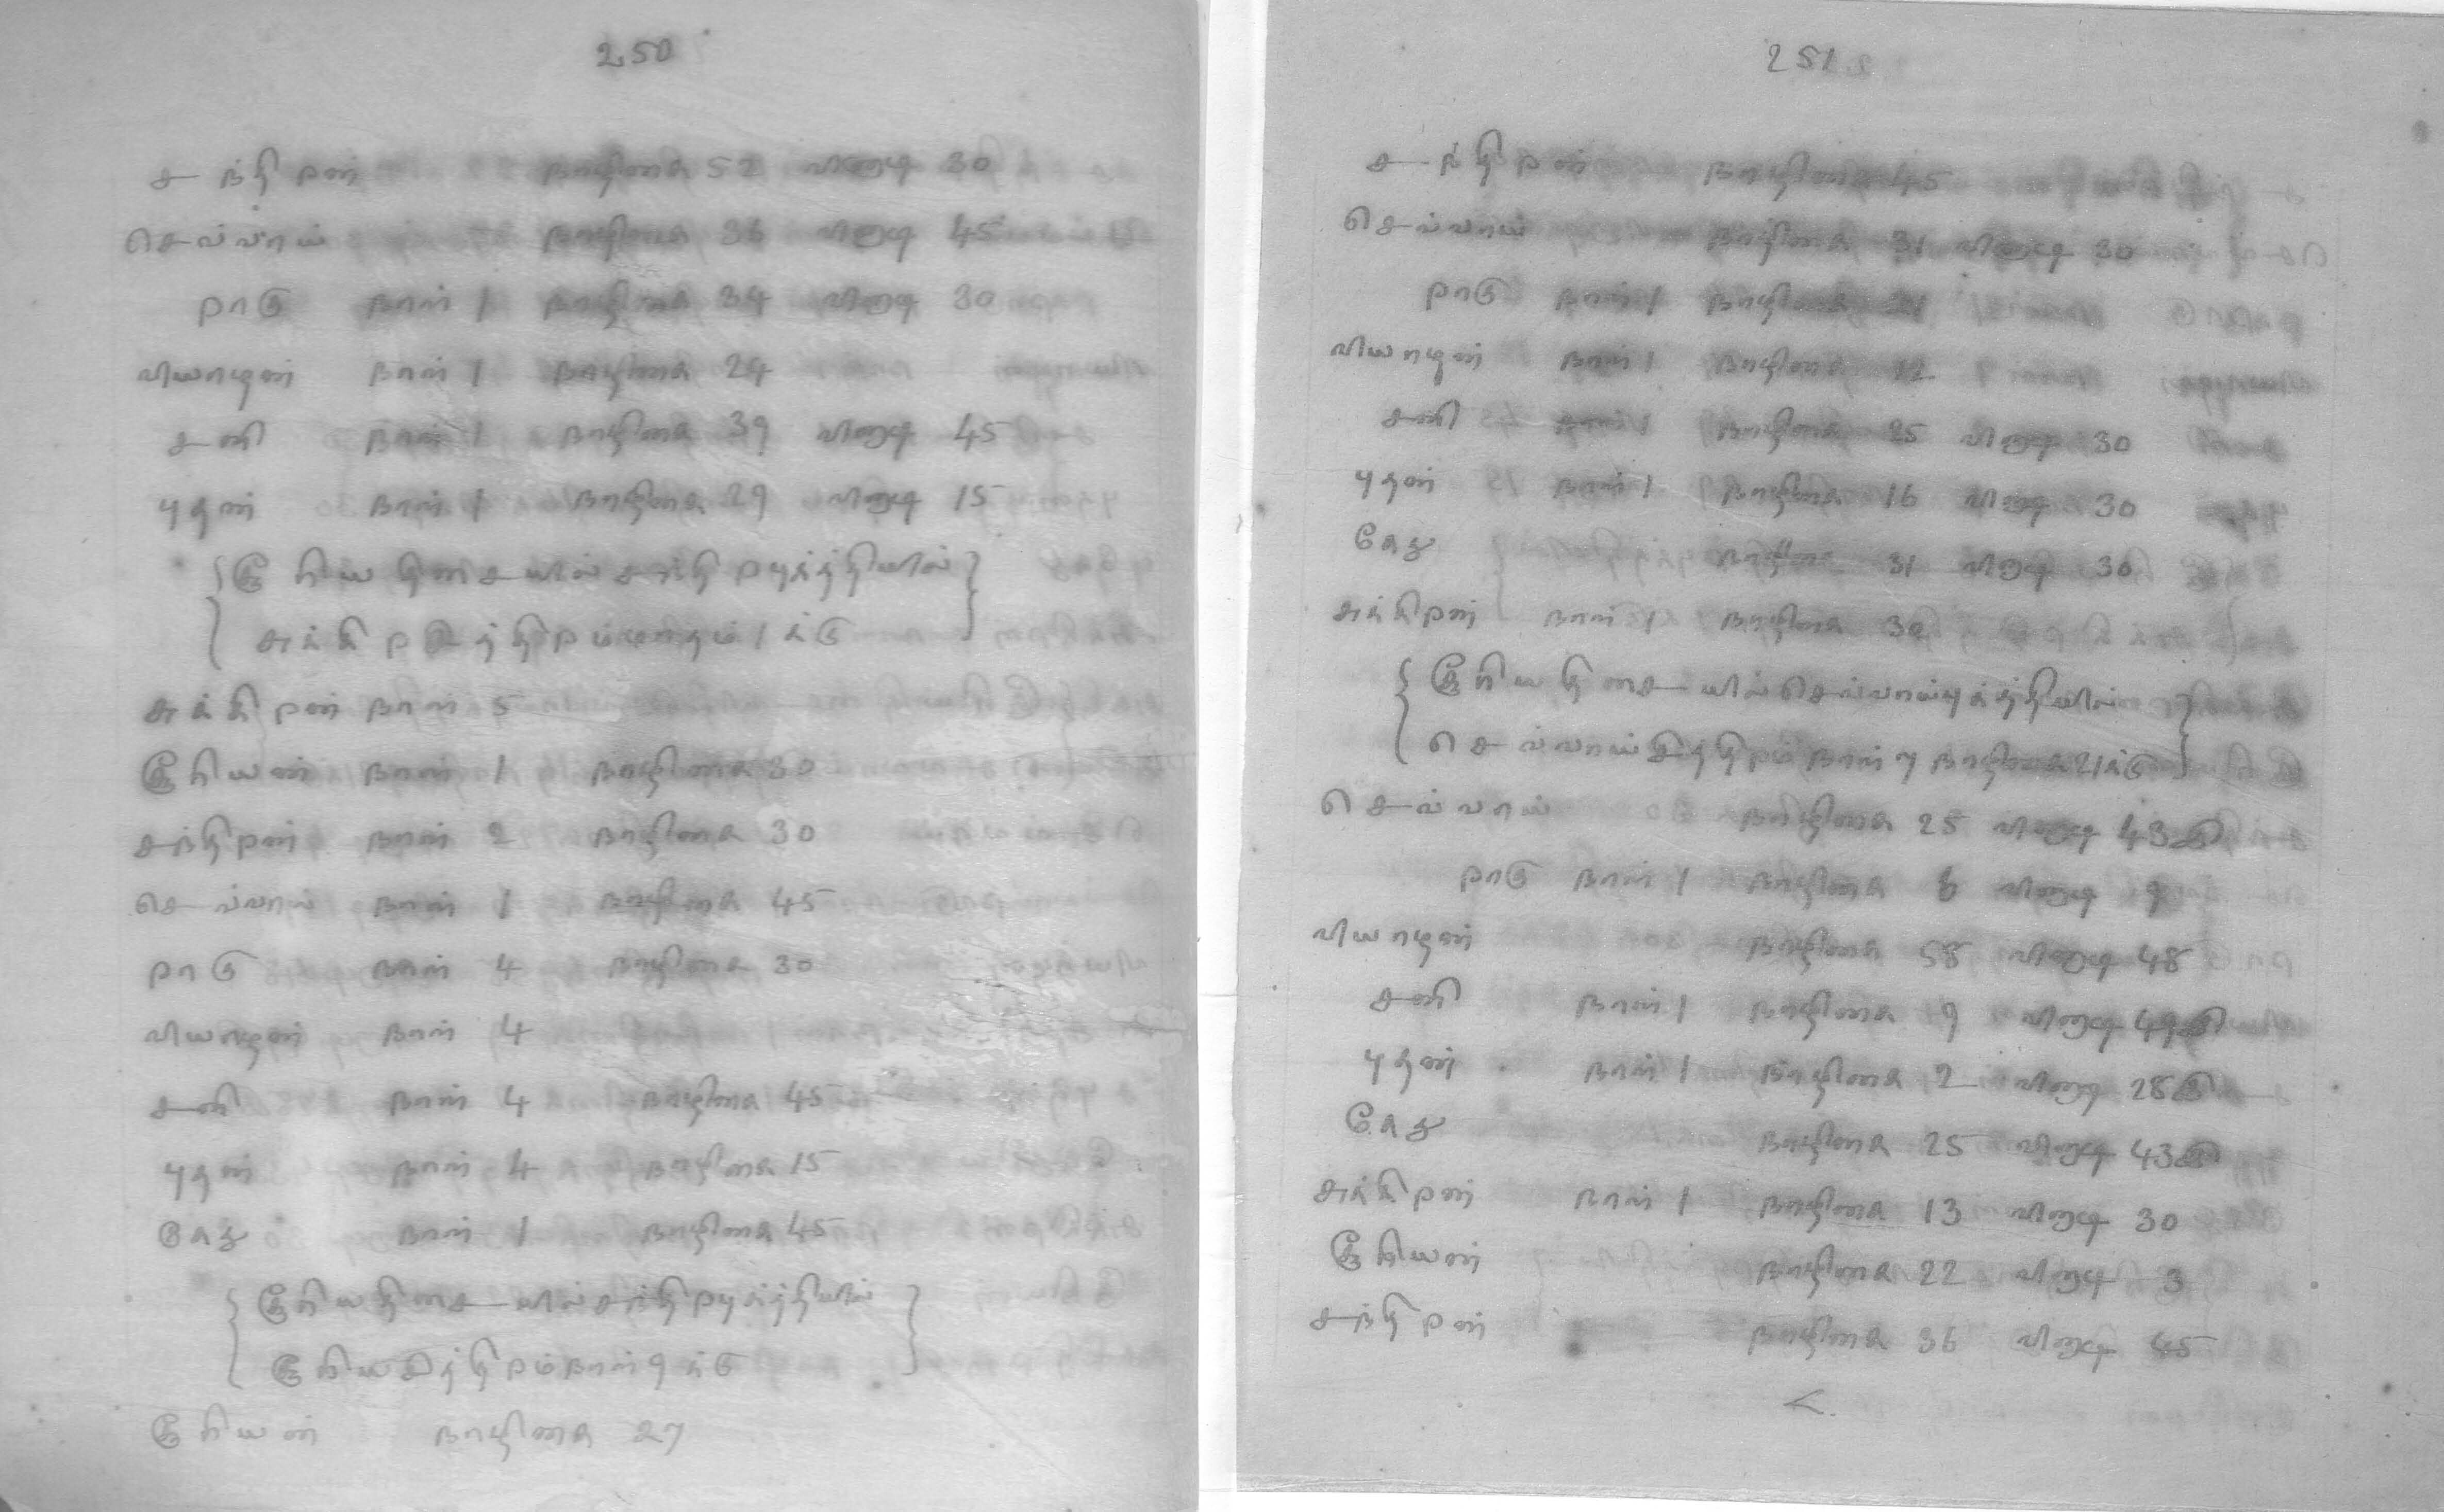 250
சந்திரன் நாழிகை 52 வினாடி 30
செவ்வாய் நாழிகை 36 வினாடி 45
ராகு நாள் 1 நாழிகை 34 வினாடி 30
வியாழன் நாள் 1 நாழிகை 24
சனி நாள் 1 நாழிகை 39 வினாடி 45
புதன் நாள் 1 நாழிகை 29 வினாடி 15
{சூரிய திசையில் சந்திர புத்தியில்
சுக்கிர சித்திரம் மாதம் 1 க்கு}
சுக்கிரன் நாள் 5
சூரியன் நாள் 1 நாழிகை 30
சந்திரன் நாள் 2 நாழிகை 30
செவ்வாய் நாள் 1 நாழிகை 45
ராகு நாள் 4 நாழிகை 30
வியாழன் நாள் 4
சனி நாள் 4 நாழிகை 45
புதன் நாள் 4 நாழிகை 15
கேது நாள் 1 நாழிகை 45
{சூரிய திசையில் சந்திர புத்தியில்
சூரிய சித்திரம் நாள் 9 க்கு}
சூரியன் நாழிகை 27
251
சந்திரன் நாழிகை 45
செவ்வாய் நாழிகை 31 வினாடி 30
ராகு நாள் 1 நாழிகை 21
வியாழன் நாள் 1 நாழிகை 12
சனி நாள் 1 நாழிகை 25 வினாடி 30
புதன் நாள் 1 நாழிகை 16 வினாடி 30
கேது நாழிகை 31 வினாடி 30
சுக்கிரன் நாள் 1 நாழிகை 30
{சூரிய திசையில் செவ்வாய் புத்தியில்
செவ்வாய் சித்திரம் நாள் 7 நாழிகை 21 க்கு}
செவ்வாய் நாழிகை 25 வினாடி 43
ராகு நாள் 1 நாழிகை 6 வினாடி 9
வியாழன் நாழிகை 58 வினாடி 48
சனி நாள் 1 நாழிகை 9 வினாடி 49
புதன் நாள் 1 நாழிகை 2 வினாடி 28
கேது நாழிகை 25 வினாடி 43
சுக்கிரன் நாள் 1 நாழிகை 13 வினாடி 30
சூரியன் நாழிகை 22 வினாடி 3
சந்திரன் நாழிகை 36 வினாடி 45